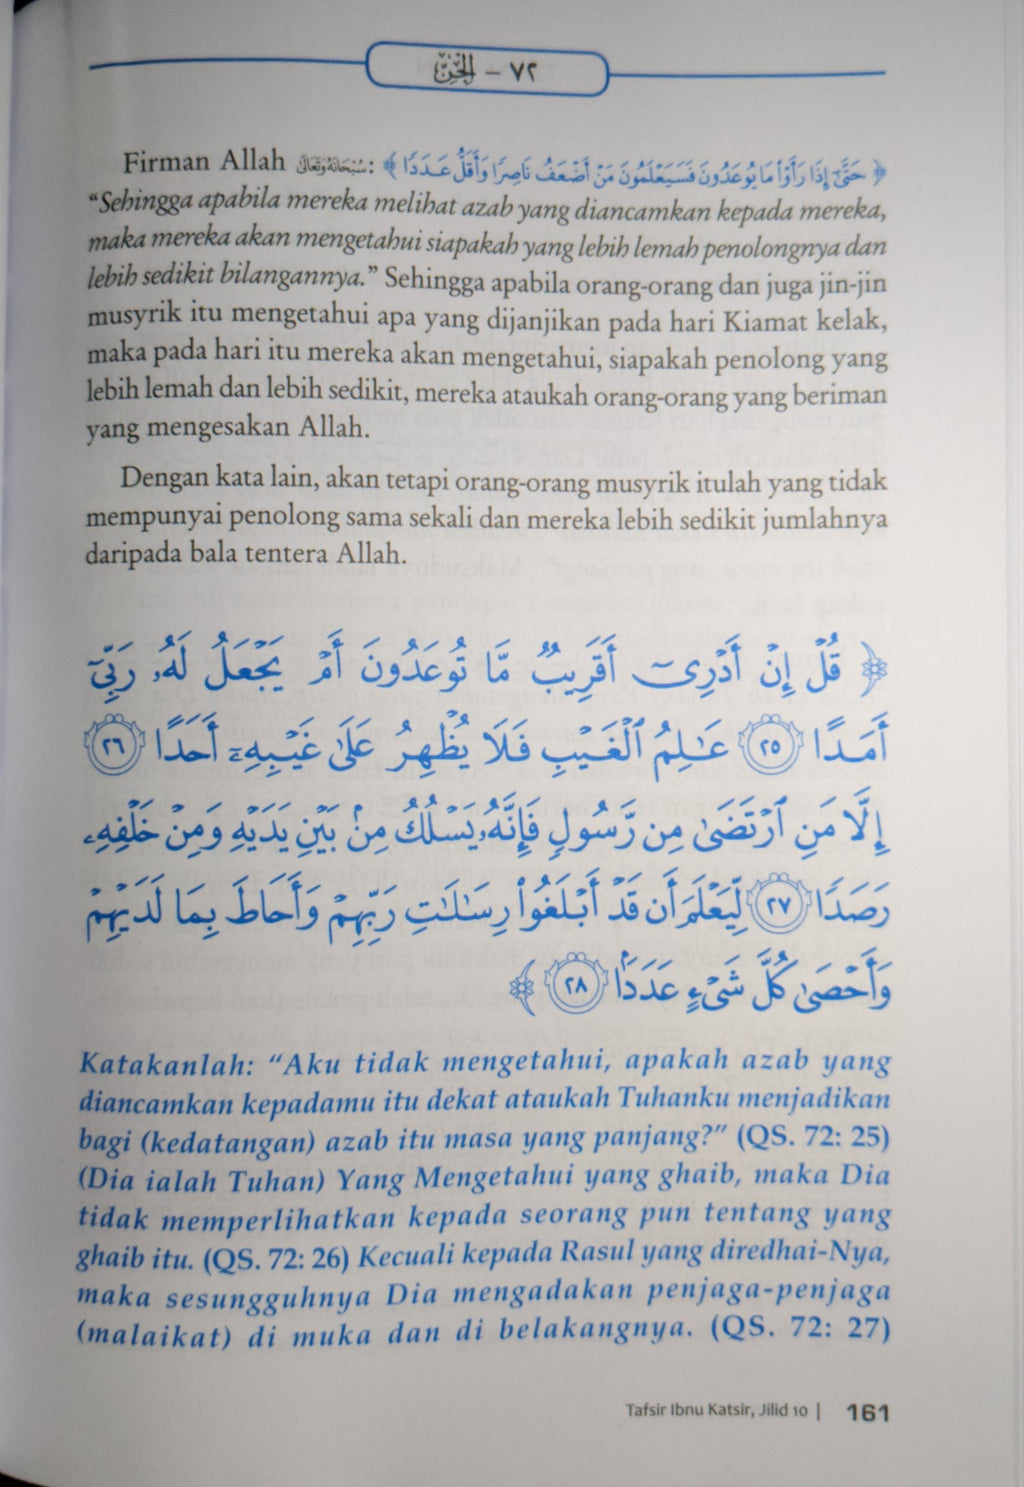 ٧٢ - الجن
Firman Allah سُبْحَانَهُ وَتَعَالَىٰ: ﴿ حَتَّىٰٓ إِذَا رَأَوْا۟ مَا يُوعَدُونَ فَسَيَعْلَمُونَ مَنْ أَضْعَفُ نَاصِرًا وَأَقَلُّ عَدَدًا ﴾
“Sehingga apabila mereka melihat azab yang diancamkan kepada mereka,
maka mereka akan mengetahui siapakah yang lebih lemah penolongnya dan
lebih sedikit bilangannya.” Sehingga apabila orang-orang dan juga jin-jin
musyrik itu mengetahui apa yang dijanjikan pada hari Kiamat kelak,
maka pada hari itu mereka akan mengetahui, siapakah penolong yang
lebih lemah dan lebih sedikit, mereka ataukah orang-orang yang beriman
yang mengesakan Allah.
Dengan kata lain, akan tetapi orang-orang musyrik itulah yang tidak
mempunyai penolong sama sekali dan mereka lebih sedikit jumlahnya
daripada bala tentera Allah.
﴿ قُلْ إِنْ أَدْرِىٓ أَقَرِيبٌ مَّا تُوعَدُونَ أَمْ يَجْعَلُ لَهُۥ رَبِّىٓ
أَمَدًا ٢٥ عَـٰلِمُ ٱلْغَيْبِ فَلَا يُظْهِرُ عَلَىٰ غَيْبِهِۦٓ أَحَدًا ٢٦
إِلَّا مَنِ ٱرْتَضَىٰ مِن رَّسُولٍ فَإِنَّهُۥ يَسْلُكُ مِنۢ بَيْنِ يَدَيْهِ وَمِنْ خَلْفِهِۦ
رَصَدًا ٢٧ لِّيَعْلَمَ أَن قَدْ أَبْلَغُوا۟ رِسَـٰلَـٰتِ رَبِّهِمْ وَأَحَاطَ بِمَا لَدَيْهِمْ
وَأَحْصَىٰ كُلَّ شَىْءٍ عَدَدًۢا ٢٨ ﴾
Katakanlah: “Aku tidak mengetahui, apakah azab yang
diancamkan kepadamu itu dekat ataukah Tuhanku menjadikan
bagi (kedatangan) azab itu masa yang panjang?” (QS. 72: 25)
(Dia ialah Tuhan) Yang Mengetahui yang ghaib, maka Dia
tidak memperlihatkan kepada seorang pun tentang yang
ghaib itu. (QS. 72: 26) Kecuali kepada Rasul yang diredhai-Nya,
maka sesungguhnya Dia mengadakan penjaga-penjaga
(malaikat) di muka dan di belakangnya. (QS. 72: 27)
Tafsir Ibnu Katsir, Jilid 10 | 161